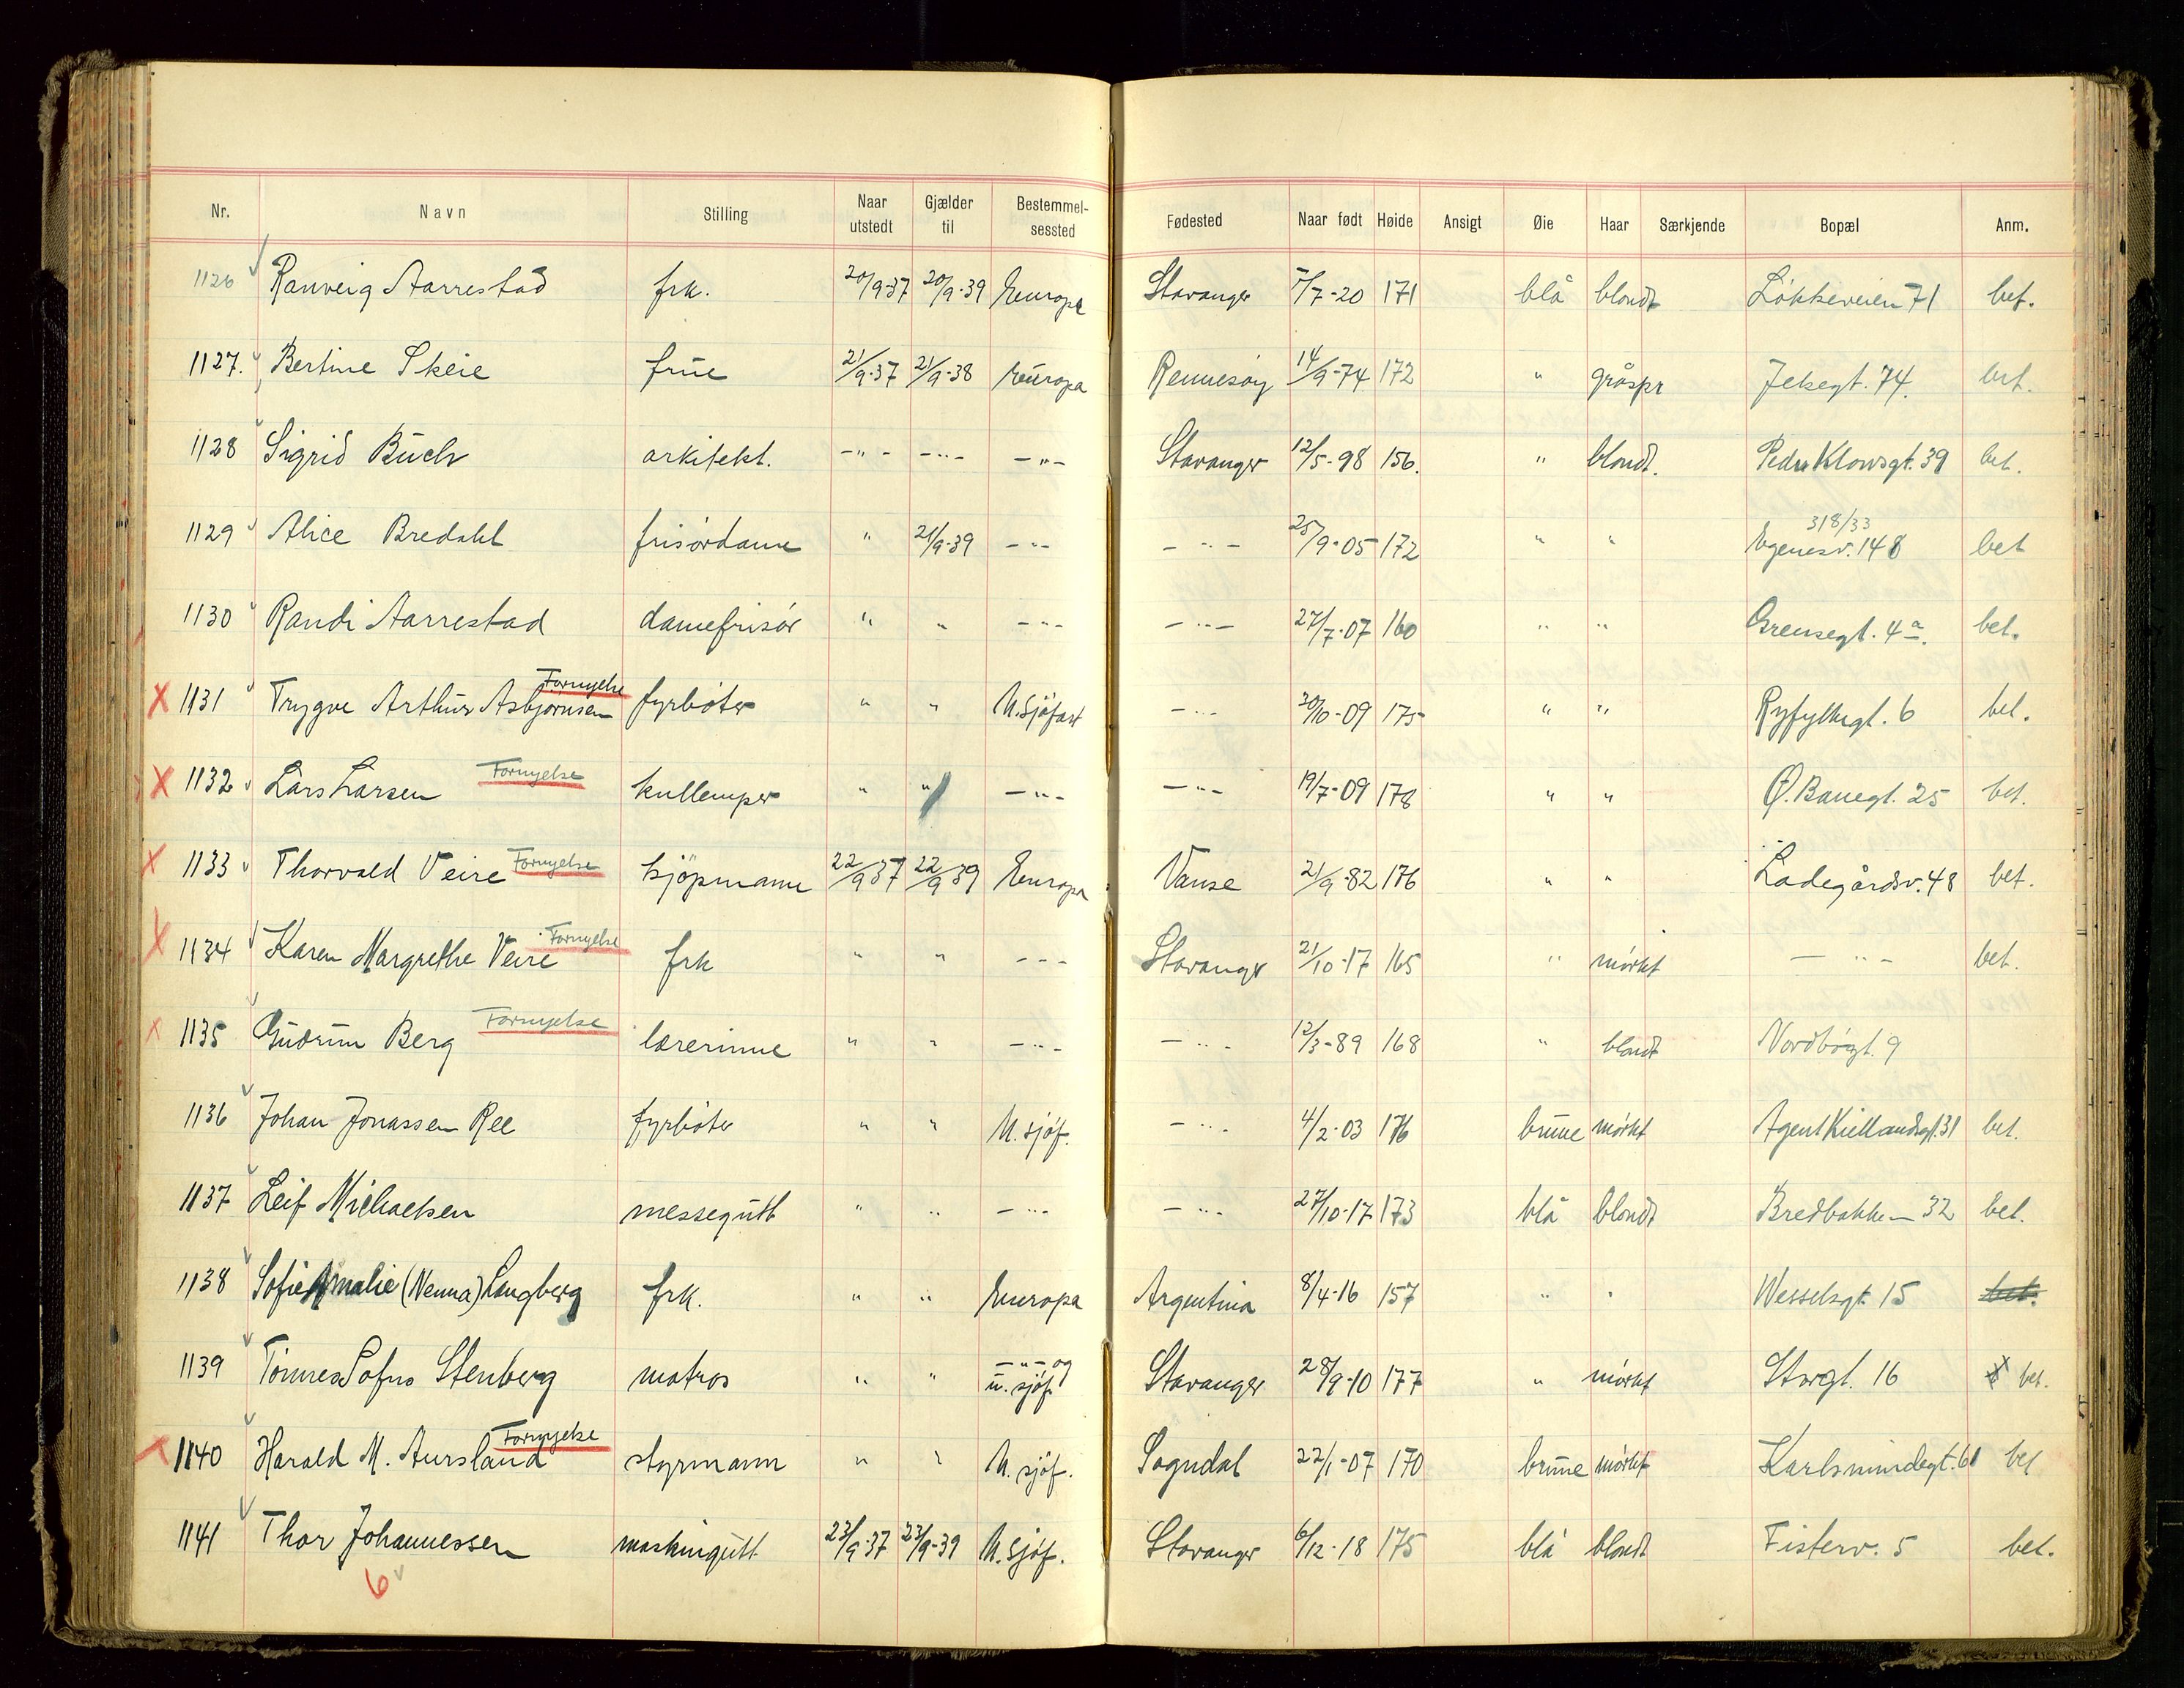 Nr. Navn Stilling Naar utstedt Gjælder til Bestemmel-sessted Fødested Naar født Høide Ansigt Øie Haar Særkjende Bopæl Anm.
1126 Ranveig Aarrestad frk. 20/9-37 20/9-39 Europa Stavanger 7/7-20 171 blå blondt Løkkeveien 71 bet.
1127. Bertine Skeie frue 21/9-37 21/9-38 Europa Rennesøy 14/9-74 172 " gråspr Jelsegt. 74. bet.
1128 Sigrid Buch arkitekt. -"- -"- -"- Stavanger 12/5-98 156. " blondt. Peder Klowsgt. 39 bet.
318/33
1129 Alice Bredahl frisørdame " 21/9-39 -"- -"- 25/9-05 172 " " Egenesv. 148 bet
1130 Randi Aarrestad damefrisør " " -"- -"- 27/7-07 160 " " Grensegt. 4a. bet.
Fornyelse
X 1131 Trygve Arthur Asbjørnsen fyrbøter " " U.sjøfart -"- 30/10-09 175 " " Ryfylkegt. 6 bet.
X 1132 Lars Larsen Fornyelse kullemper " " -"- -"- 19/7-09 178 " " Ø. Banegt. 25 bet.
X 1133 Thorvald Veire Fornyelse kjøpmann 22/9-37 22/9-39 Europa Vanse 21/9-82 176 " " Ladegårdsv. 48 bet.
X 1134 Karen Margrethe Veire Fornyelse frk " " -"- Stavanger 21/10-17 165 " mørkt -"- bet.
X 1135 Gudrun Berg Fornyelse lærerinne " " -"- -"- 12/3-89 168 " blondt Nordbøgt. 9
1136 Johan Jonassen Ree fyrbøter " " U.sjøf. -"- 4/2-03 176 brune mørkt Agent Kiellandsgt. 31 bet.
1137 Leif Michaelsen messegutt " " -"- -"- 27/10-17 173 blå blondt Bredbakken 32 bet.
1138 Sofie Amalie (Nenna) Langberg frk. " " Europa Argentina 8/4-16 157 " " Wesselsgt. 15 bet.
1139 Tønnes Sofus Stenberg matros " " -"- og u. sjøf. Stavanger 28/9-10 177 " mørkt Storgt. 16 bet.
Fornyelse
1140 Harald M. Aursland styrmann " " U. sjøf. Sogndal 22/1-07 170 brune mørkt Karlsmindegt. 61 bet
1141 Thor Johannessen maskingutt 23/9-37 23/9-39 U.sjøf. Stavanger 6/12-18 175 blå blondt Fisterv. 5 bet.
6